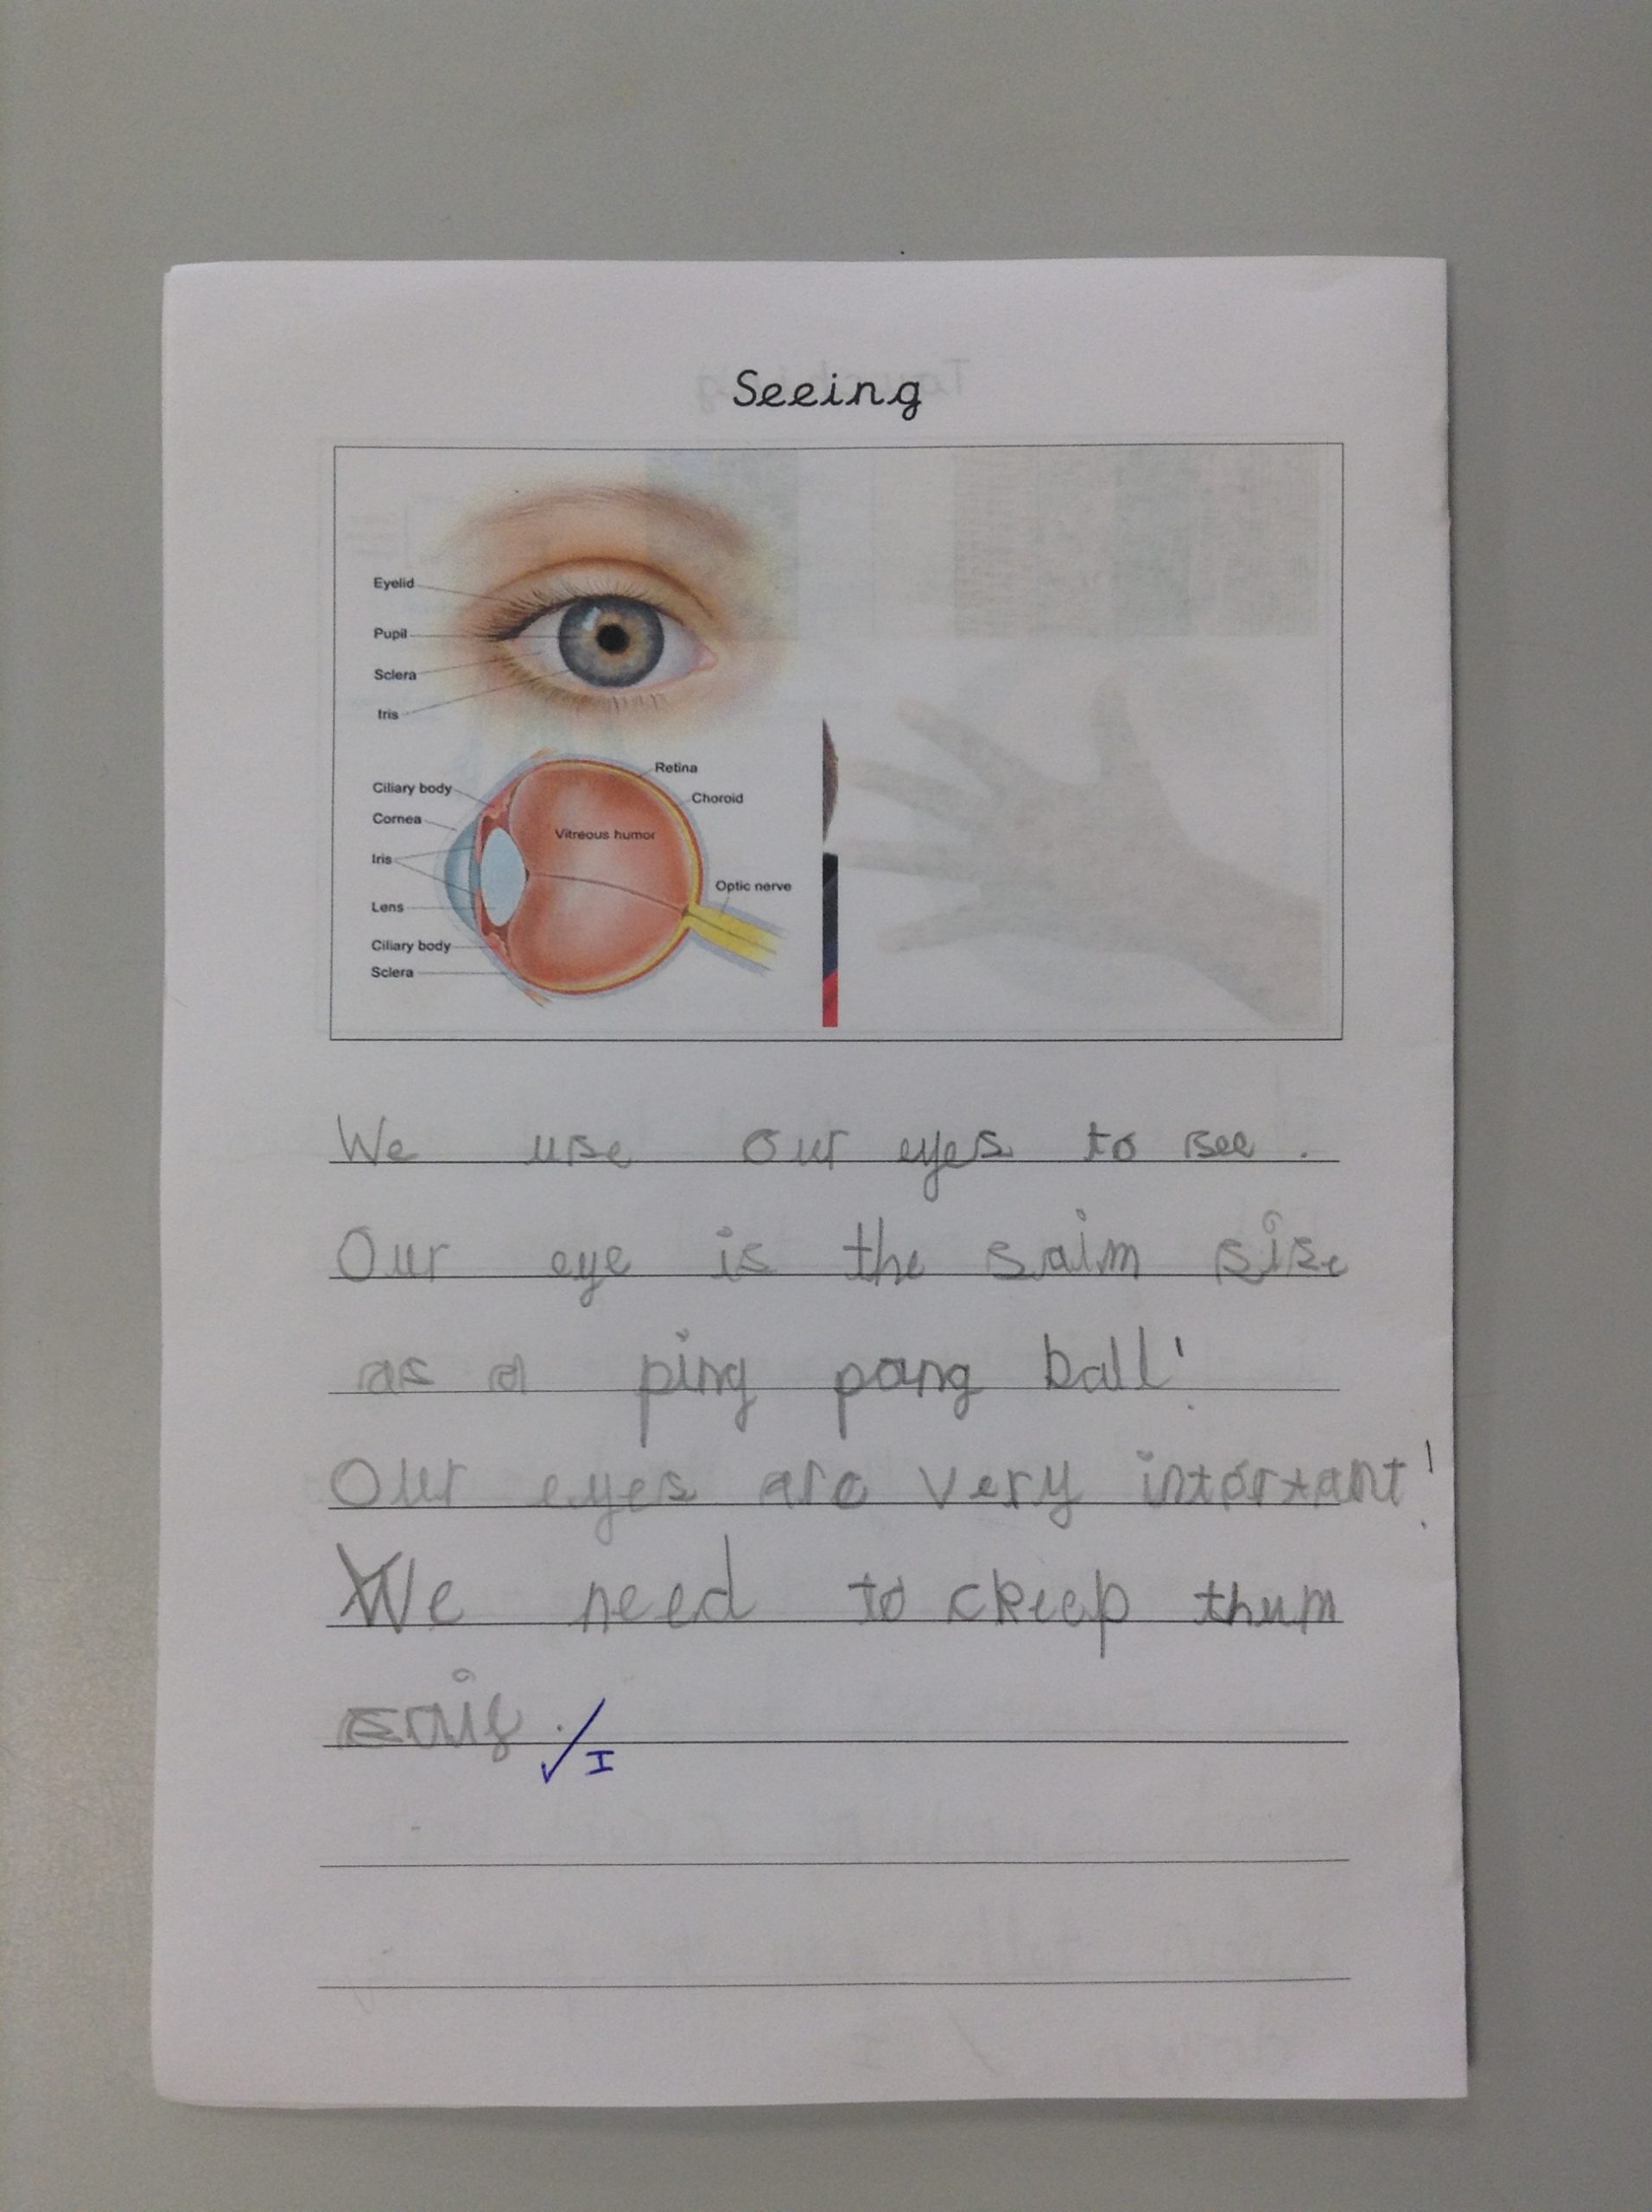 Seeing
Eyelid
Pupil
Sclera
Iris
Retina
Ciliary body
Choroid
Cornea
Vitreous humor
Iris
Optic nerve
Lens
Ciliary body
Sclera
We use our eyes to see.
Our eye is the saim sise
as a ping pong ball!
Our eyes are very intortant!
We need to ckeep thum
I